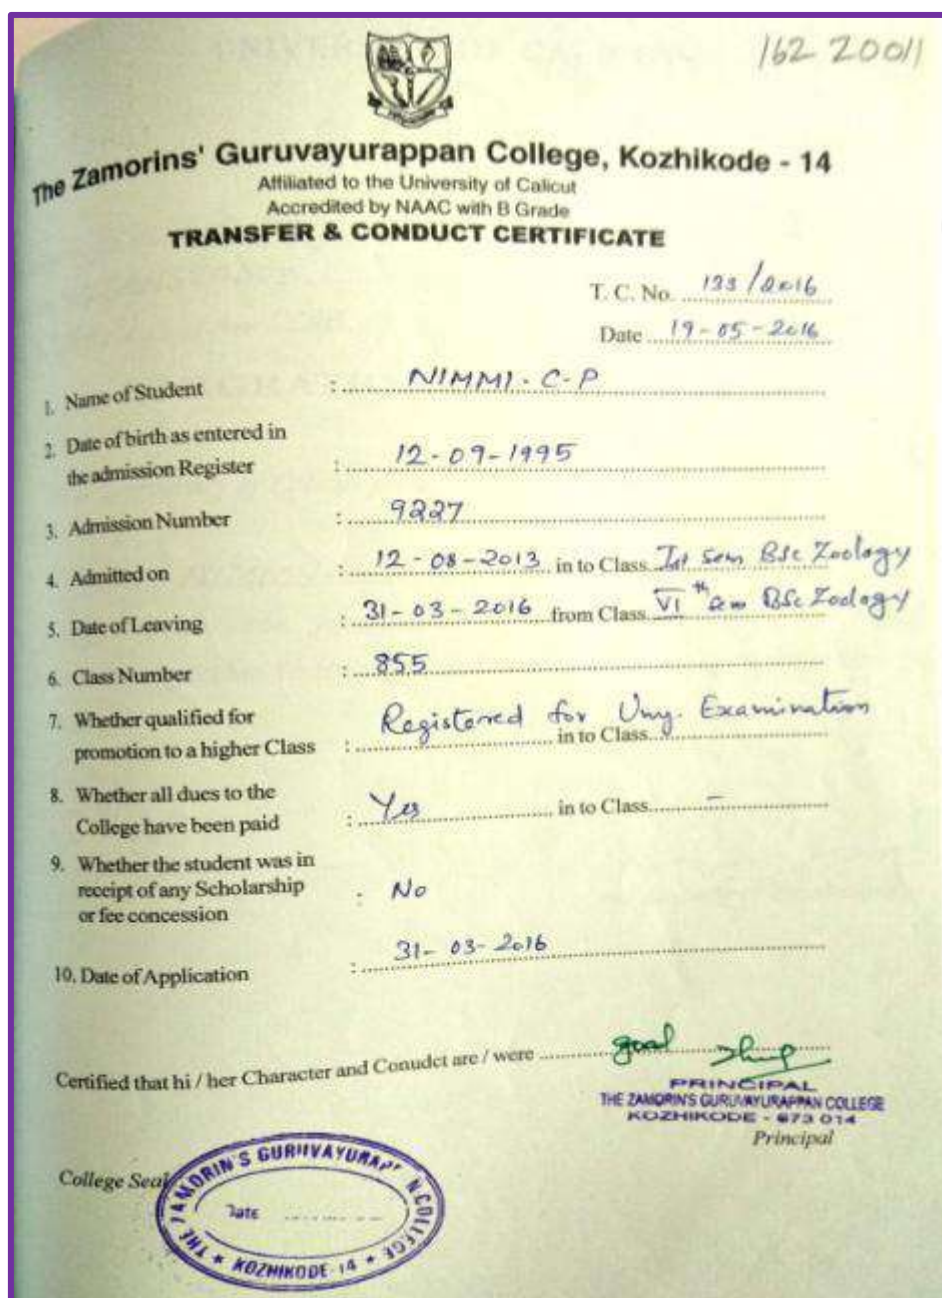 162 20011
The Zamorins' Guruvayurappan College, Kozhikode - 14
Affiliated to the University of Calicut
Accredited by NAAC with B Grade
TRANSFER & CONDUCT CERTIFICATE
T. C. No. 133/2016
Date 19-05-2016
1. Name of Student : NIMMI. C-P
2. Date of birth as entered in
the admission Register : 12-09-1995
3. Admission Number : 9227
4. Admitted on : 12-08-2013 in to Class Ist Sem BSc Zoology
5. Date of Leaving : 31-03-2016 from Class VIth Sem BSc Zoology
6. Class Number : 855
7. Whether qualified for Registered for Uny. Examination
promotion to a higher Class : in to Class
8. Whether all dues to the
College have been paid : Yes in to Class –
9. Whether the student was in
receipt of any Scholarship : No
or fee concession
10. Date of Application : 31-03-2016
Certified that hi / her Character and Conudct are / were good
PRINCIPAL
THE ZAMORIN'S GURUVAYURAPPAN COLLEGE
KOZHIKODE - 673 014
Principal
College Seal
THE ZAMORIN'S GURUVAYURAPP N COLLEGE
Date
KOZHIKODE-14